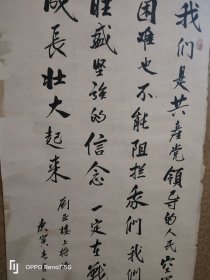 我们是共产党领导的人民空
困难也不能阻拦我们我们
旺盛坚强的信念一定在战
成长壮大起来
刘亚楼上将
OPPO Reno7 5G